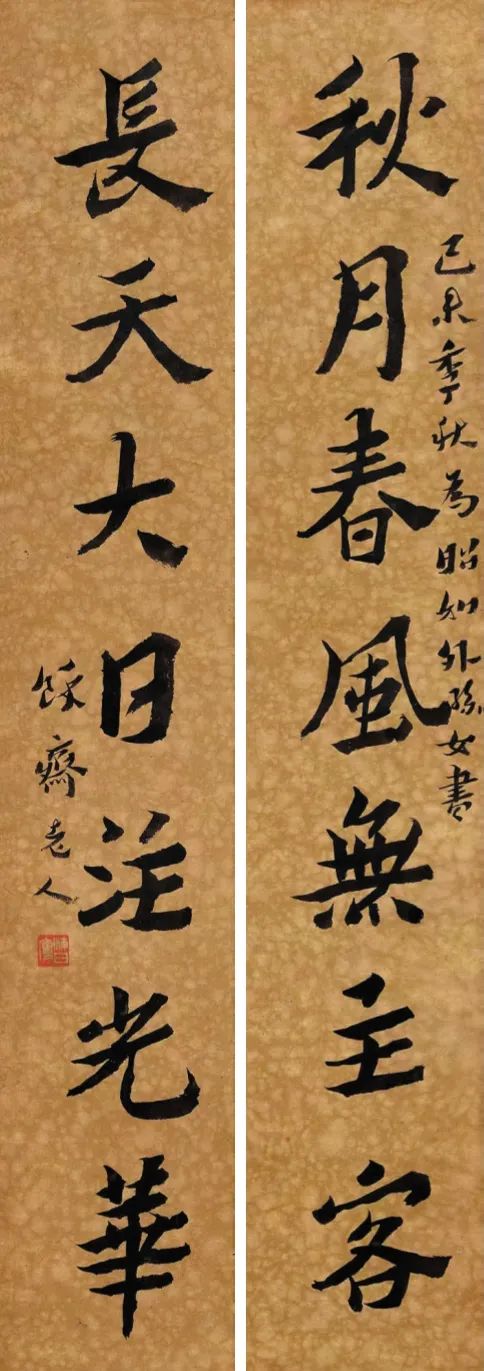 秋月春風無主客
己未季秋為昭如外孫女書
長天大日光華
餘齋老人